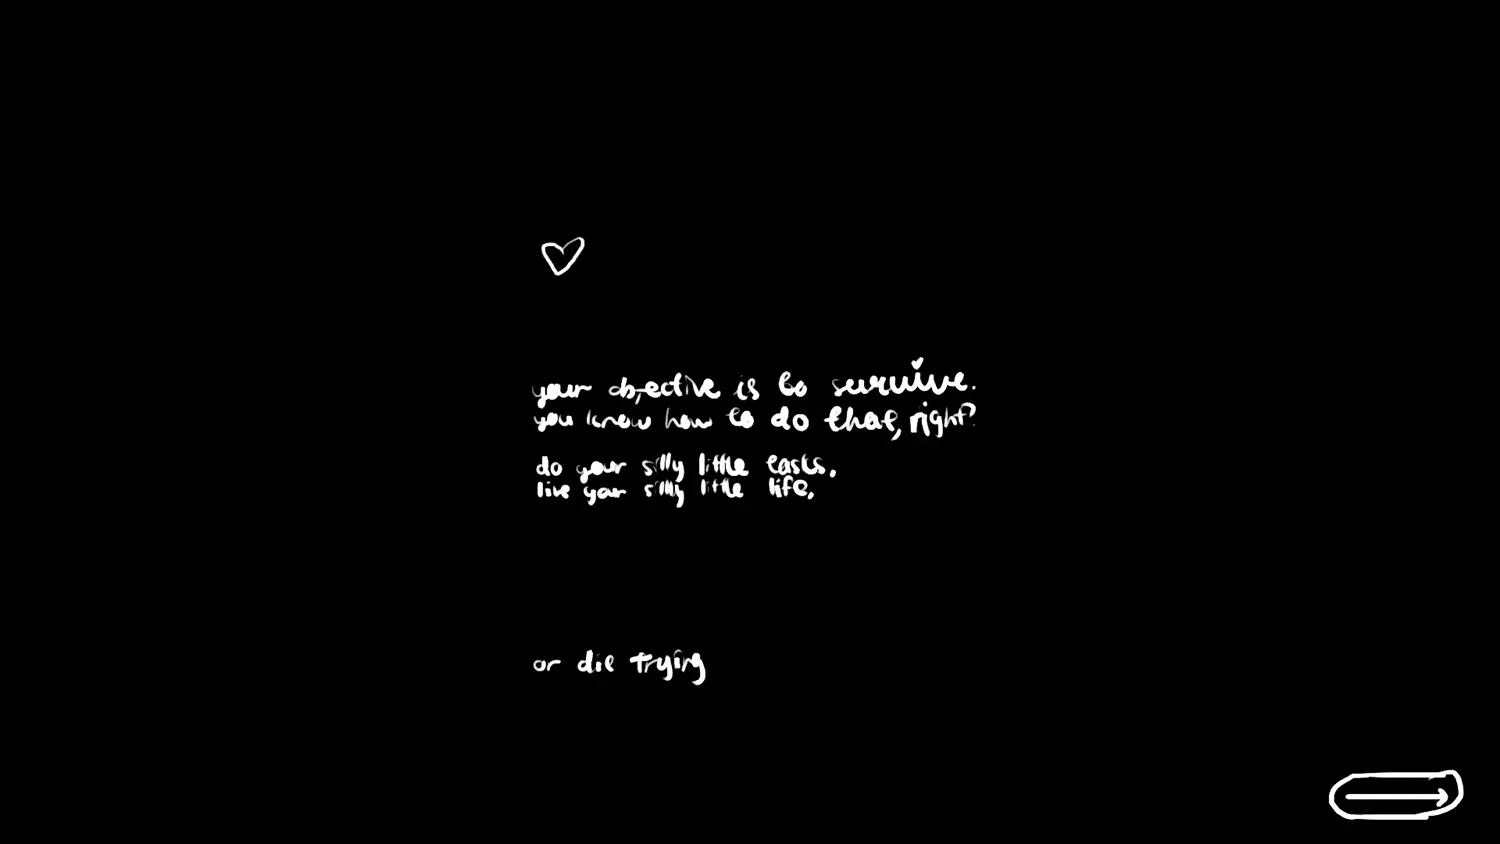 your objective is to survive.
you know how to do that, right?
do your silly little tasks,
live your silly little life,
or die trying